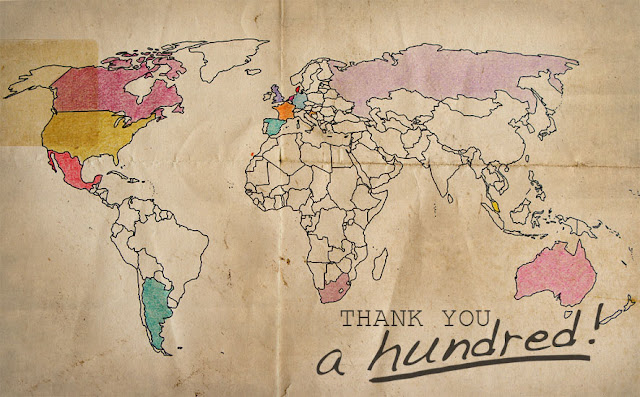 THANK YOU
a hundred!